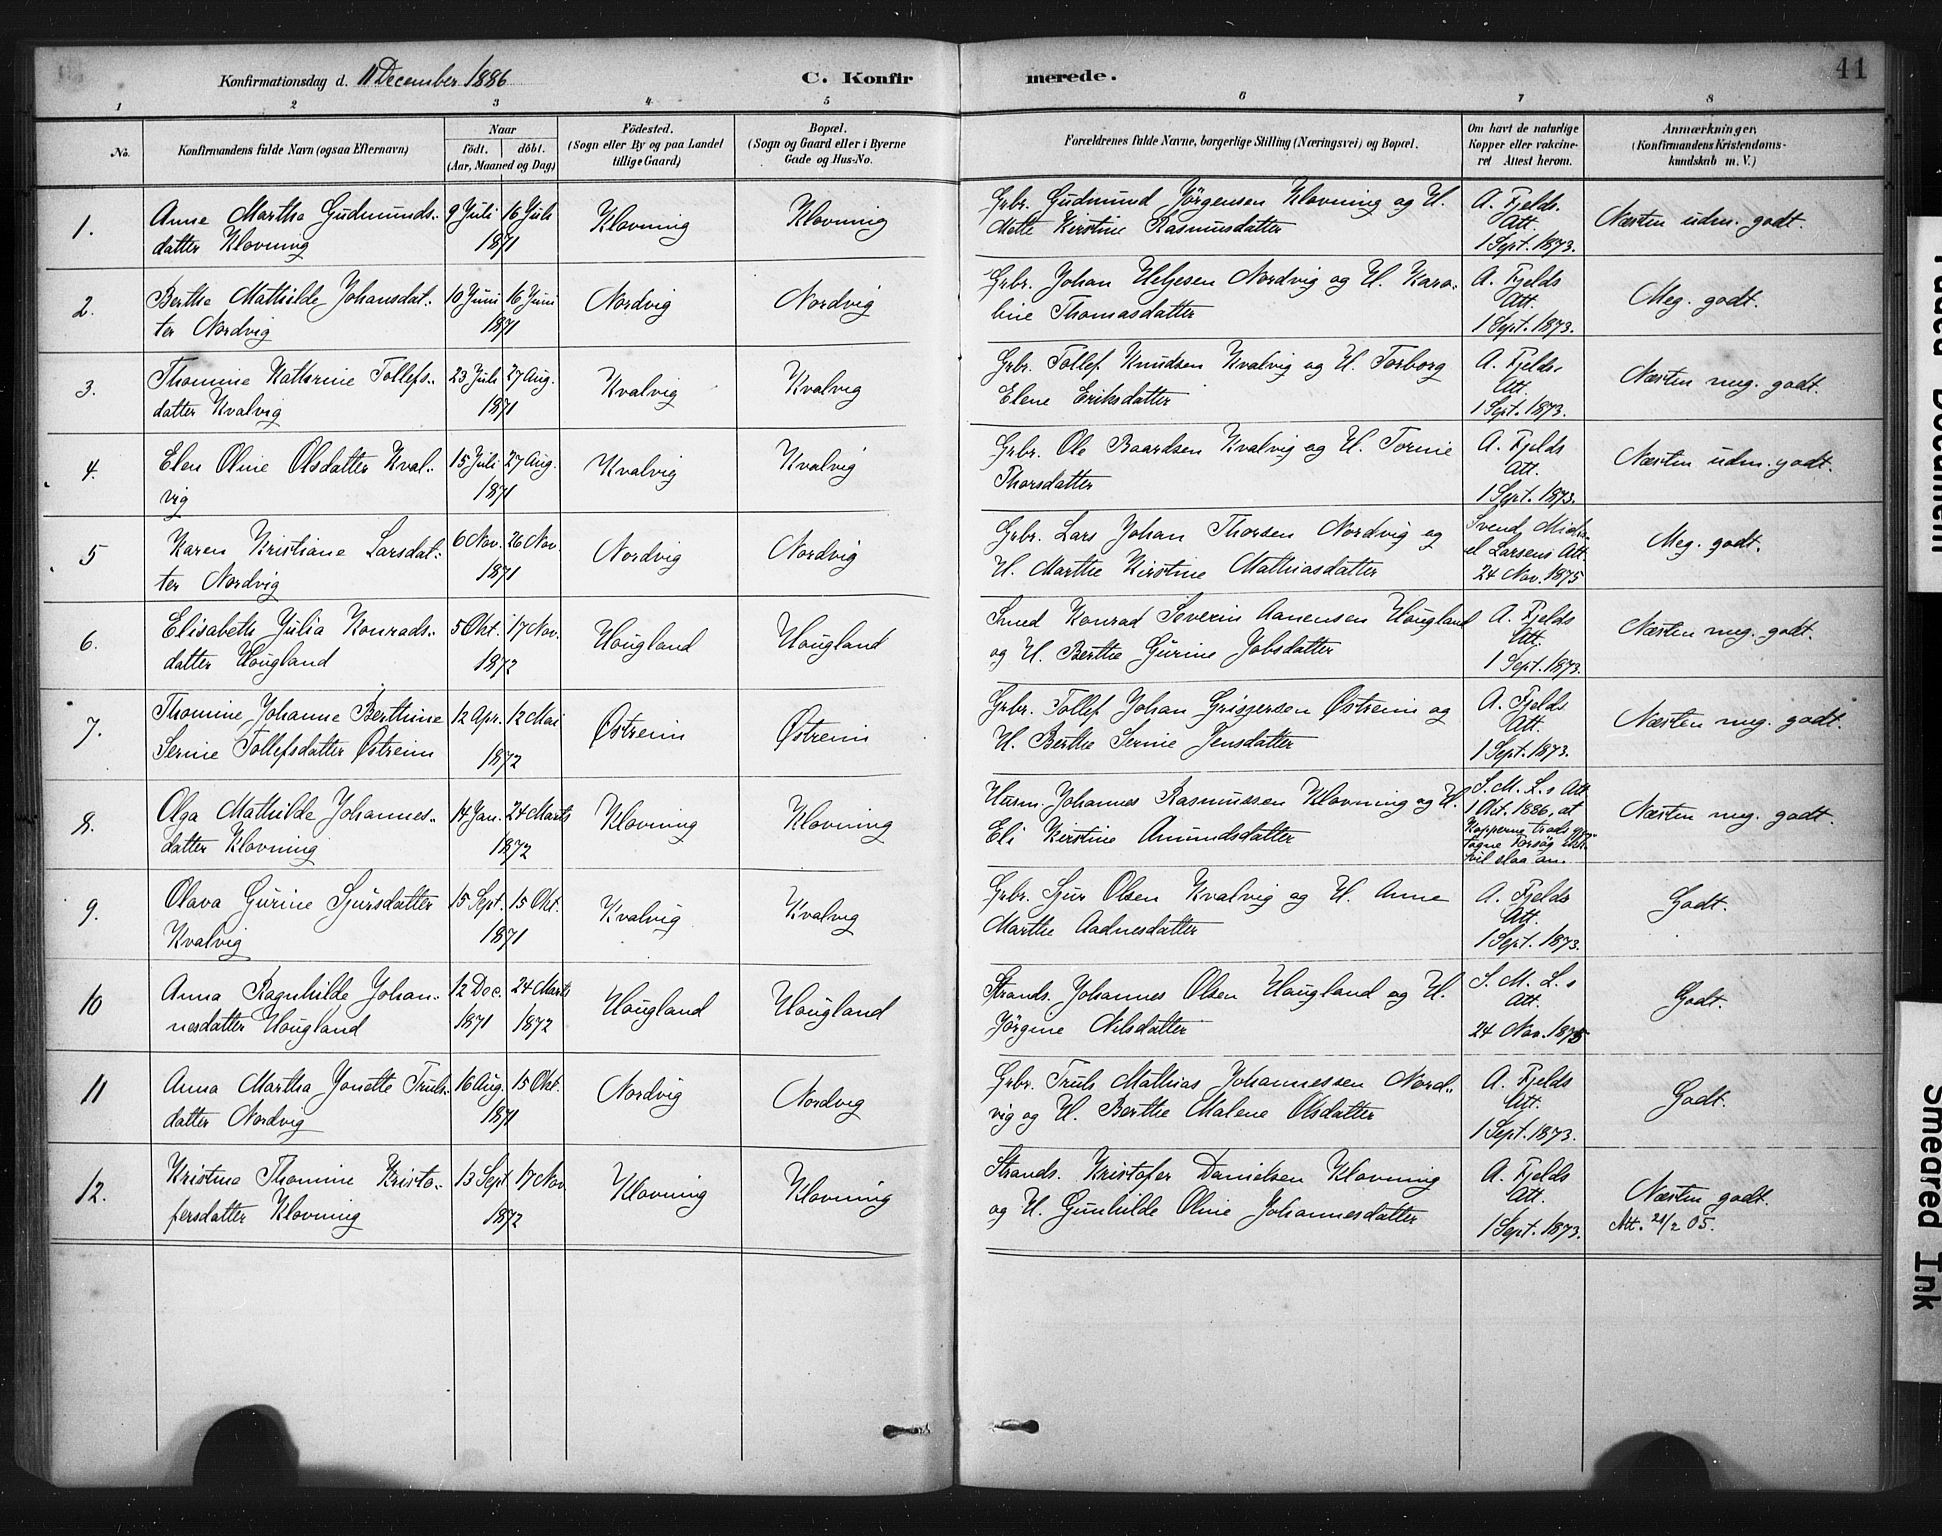 Konfirmationsdag d. 11 December 1886
C. Konfirmerede.
41
1 2 3 4 5 6 7 8
No.
Konfirmandens fulde Navn (ogsaa Efternavn)
Naar
födt. döbt.
(Aar, Maaned og Dag)
Födested.
(Sogn eller By og paa Landet
tillige Gaard)
Bopæl.
(Sogn og Gaard eller i Byerne
Gade og Hus-No.
Forældrenes fulde Navne, borgerlige Stilling (Næringsvei) og Bopæl.
Om havt de naturlige
Kopper eller vakcine-
ret Attest herom.
Anmærkninger.
(Konfirmandens Kristendoms-
kundskab m. V.)
1.
Anne Martha Gudmunds-
datter Klovning
9 Juli 16 Juli
1871
Klovning
Klovning
Grbr. Gudmund Jörgensen Klovning og H.
Mette Kirstine Rasmusdatter
A. Fjelds
Att.
1 Sept. 1873.
Næsten udm. godt.
2.
Berthe Mathilde Johansdat-
ter Nordvig
10 Juni 16 Juni
1871
Nordvig
Nordvig
Grbr. Johan Heljesen Nordvig og H. Karo-
line Thomasdatter
A. Fjelds
Att.
1 Sept. 1873.
Meg. godt.
3.
Thomine Kathrine Tollefs-
datter Kvalvig
23 Juli 27 Aug.
1871
Kvalvig
Kvalvig
Grbr. Tollef Knudsen Kvalvig og H. Torborg
Elene Eriksdatter
A. Fjelds
Att.
1 Sept. 1873.
Næsten meg. godt.
4.
Elen Oline Olsdatter Kval-
vig
15 Juli 27 Aug.
1871
Kvalvig
Kvalvig
Grbr. Ole Baardsen Kvalvig og H. Tormie
Thorsdatter
A. Fjelds
Att.
1 Sept. 1873.
Næsten udm. godt.
5
Karen Kristiane Larsdat-
ter Nordvig
6 Nov. 26 Nov.
1871
Nordvig
Nordvig
Grbr. Lars Johan Thorsen Nordvig og
H. Marthe Kirstine Mathiasdatter
Svend Micha-
el Larsens Att.
24 Nov. 1875
Meg. godt.
6.
Elisabeth Julia Konrads-
datter Hougland
5 Okt. 17 Nov.
1872
Hougland
Hougland
Smed Konrad Severin Aanensen Hougland
og H. Berthe Gurine Jobsdatter
A. Fjelds
Att.
1 Sept. 1873.
Næsten meg. godt.
7.
Thomine Johanne Berthine
Serine Tollefsdatter Østreim
12 Apr. 12 Mai
1872
Østreim
Østreim
Grbr. Tollef Johan Grisjersen Østreim og
H. Berthe Serine Jensdatter
A. Fjelds
Att.
1 Sept. 1873.
Næsten meg. godt.
8.
Olga Mathilde Johannes-
datter Klovning
14 Jan. 24 Marts
1872
Klovning
Klovning
Husm. Johannes Rasmussen Klovning og H.
Eli Kirstine Amundsdatter
S. M. L.s Att.
1 Okt. 1886, at
Kopperne trods gj.
tagne Forsøg ikke
vil slaa an.
Næsten meg. godt.
9.
Olava Gurine Sjursdatter
Kvalvig
15 Sept. 15 Okt.
1871
Kvalvig
Kvalvig
Grbr. Sjur Olsen Kvalvig og H. Anne
Marthe Aadnesdatter
A. Fjelds
Att.
1 Sept. 1873.
Godt.
10
Anna Ragnhilde Johan-
nesdatter Hougland
12 Dec. 24 Marts
1871 1872
Hougland
Hougland
Strands. Johannes Olsen Hougland og H.
Jörgine Nilsdatter
S. M. L.s
Att.
24 Nov. 1875
Godt.
11
Anna Martha Jonette Truls-
datter Nordvig
16 Aug. 15 Okt.
1871
Nordvig
Nordvig
Grbr. Truls Mathias Johannessen Nord-
vig og H. Berthe Malene Olsdatter
A. Fjelds
Att.
1 Sept. 1873.
Godt.
12.
Kristina Thomine Kristo-
fersdatter Klovning
13 Sept 17 Nov
1872
Klovning
Klovning
Strands. Kristofer Danielsen Klovning
og H. Gunhilde Oline Johannesdatter
A. Fjelds
Att.
1 Sept. 1873.
Næsten godt.
Att. 21/2 05.
Faded Document
Smeared Ink